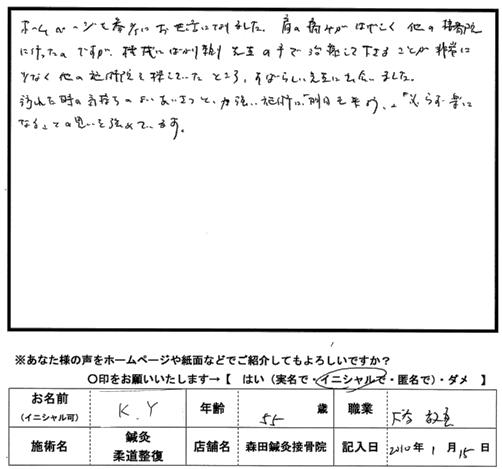 ホームページを参考にお世話になりました。肩の痛みがはげしく他の接骨院
に行ったのですが、機械にばかり頼り先生の手で治療して下さることが非常に
少なく他の施術院を探していたところ、すばらしい先生に出会いました。
訪れた時の気持ちのよいあいさつと、力強い施術に「明日も来よう」「必らず楽に
なる」との思いを強めています。
※あなた様の声をホームページや紙面などでご紹介してもよろしいですか？
〇印をお願いいたします→【 はい（実名で・イニシャルで・匿名で）・ダメ 】
お名前 (イニシャル可) K.Y 年齢 55 歳 職業
施術名 鍼灸 柔道整復 店舗名 森田鍼灸接骨院 記入日 2010年1月15日